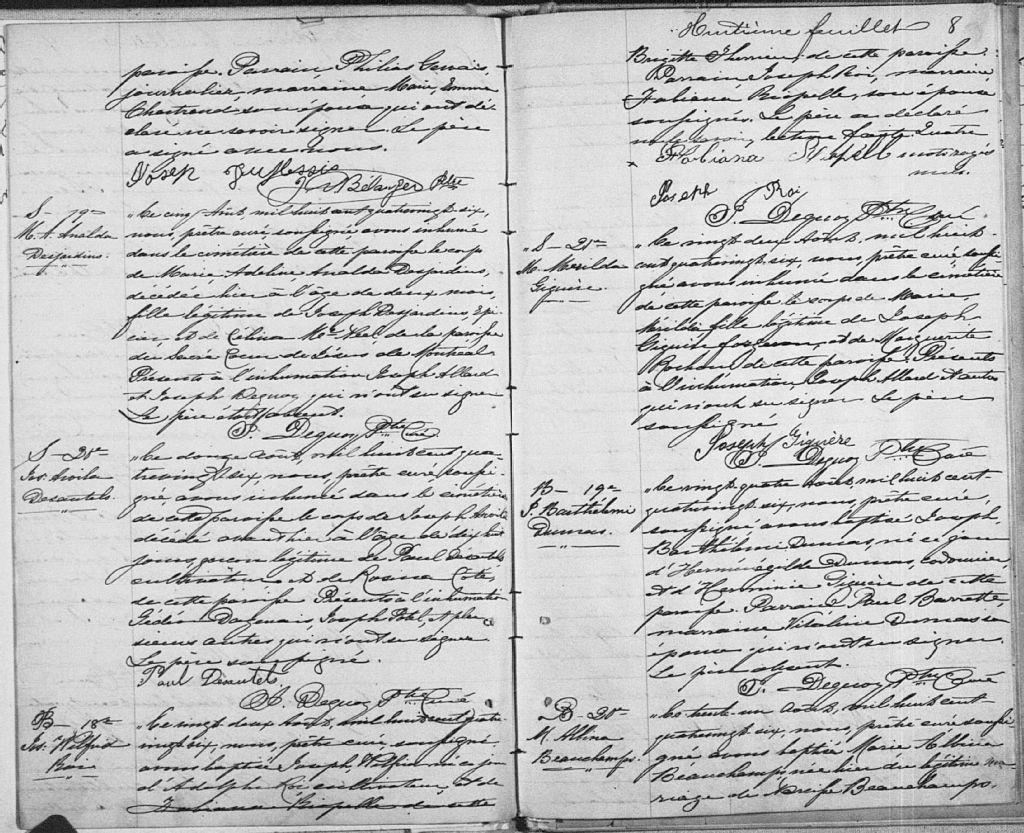 paroisse. Parrain, Philias Gervais,
journalier, marraine Marie Emma
Chartrand, son épouse qui ont dé-
claré ne savoir signer. Le père
a signé avec nous.
Josep
Bélanger Ptre
S — 19e
M. A. Analda
Desjardins.
Le cinq Août, mil huit cent quatrevingt six,
nous, prêtre curé, soussigné avons inhumé
dans le cimetière de cette paroisse le corps
de Marie, Adeline Analda Desjardins,
décédée hier à l'âge de deux mois,
fille légitime de Joseph Desjardins, Epi-
cier, et de Célina de la paroisse
du Sacré Coeur de Jésus de Montréal
Présents à l'inhumation Joseph Allard
et Joseph qui n'ont su signer
Le père était absent.
P. Dequoy Ptre Curé
S — 20e
Jos. Avila
Desautels.
Le douze Août, mil huit cent qua-
trevingt six, nous, prêtre curé, soussi-
gné avons inhumé dans le cimetière
de cette paroisse le corps de Joseph Avila
décédé avant hier à l'âge de dix huit
jours, garçon légitime de Paul Desautels
cultivateur et de Rosina Coté,
de cette paroisse Présents à l'inhumation
Gédéon Dagenais, Joseph et plu-
sieurs autres qui n'ont su signer
Le père soussigné.
Paul Désautels
P. Dequoy Ptre Curé
B — 18e
Jos. Wilfrid
Le vingt deux Août, mil huit cent quatre-
vingt six, nous, prêtre curé, soussigné,
avons baptisé Joseph, Wilfrid né ce jour
d'Adolphe Roi cultivateur, et de
Fabiana Riopelle de cette
Huitième feuillet 8
Brigitte Therrien de cette paroisse.
Parrain Joseph Roi, marraine
Fabiana Riopelle, son épouse
soussignés. Le père a déclaré
ne savoir, lecture faite. Quatre
Fabiana mots rayés
nuls.
Joseph Roi
P. Dequoy Ptre Curé
S — 21e
M. Merilda
Giguère.
Le vingt deux Août, mil huit
cent quatrevingt six, nous, prêtre curé soussi-
gné avons inhumé dans le cimetière
de cette paroisse le corps de Marie,
Mérilda fille légitime de Joseph
Giguère forgeron, et de Marguerite
Rochon de cette paroisse. Présents
à l'inhumation Joseph Allard et autres
qui n'ont su signer Le père
soussigné
Joseph Giguère
P. Dequoy Ptre Curé
B — 19e
J. Barthélémi
Dumas.
Le vingt quatre Août, mil huit cent
quatrevingt six, nous, prêtre curé,
soussigné avons baptisé Joseph,
Barthélémi Dumas, né ce jour
d'Herminégilde Dumas, cordonnier,
et d'Herminie Giguère de cette
paroisse Parrain Paul Barrette,
marraine Vitaline Dumas son
épouse qui n'ont su signer.
Le père absent.
P. Dequoy Ptre Curé
B — 20e
M. Albina
Beauchamps.
Le trente un Août, mil huit cent
quatrevingt six, nous, prêtre curé soussi-
gné, avons baptisé Marie Albina
Beauchamps, née hier du légitime ma-
riage de Narcisse Beauchamps.